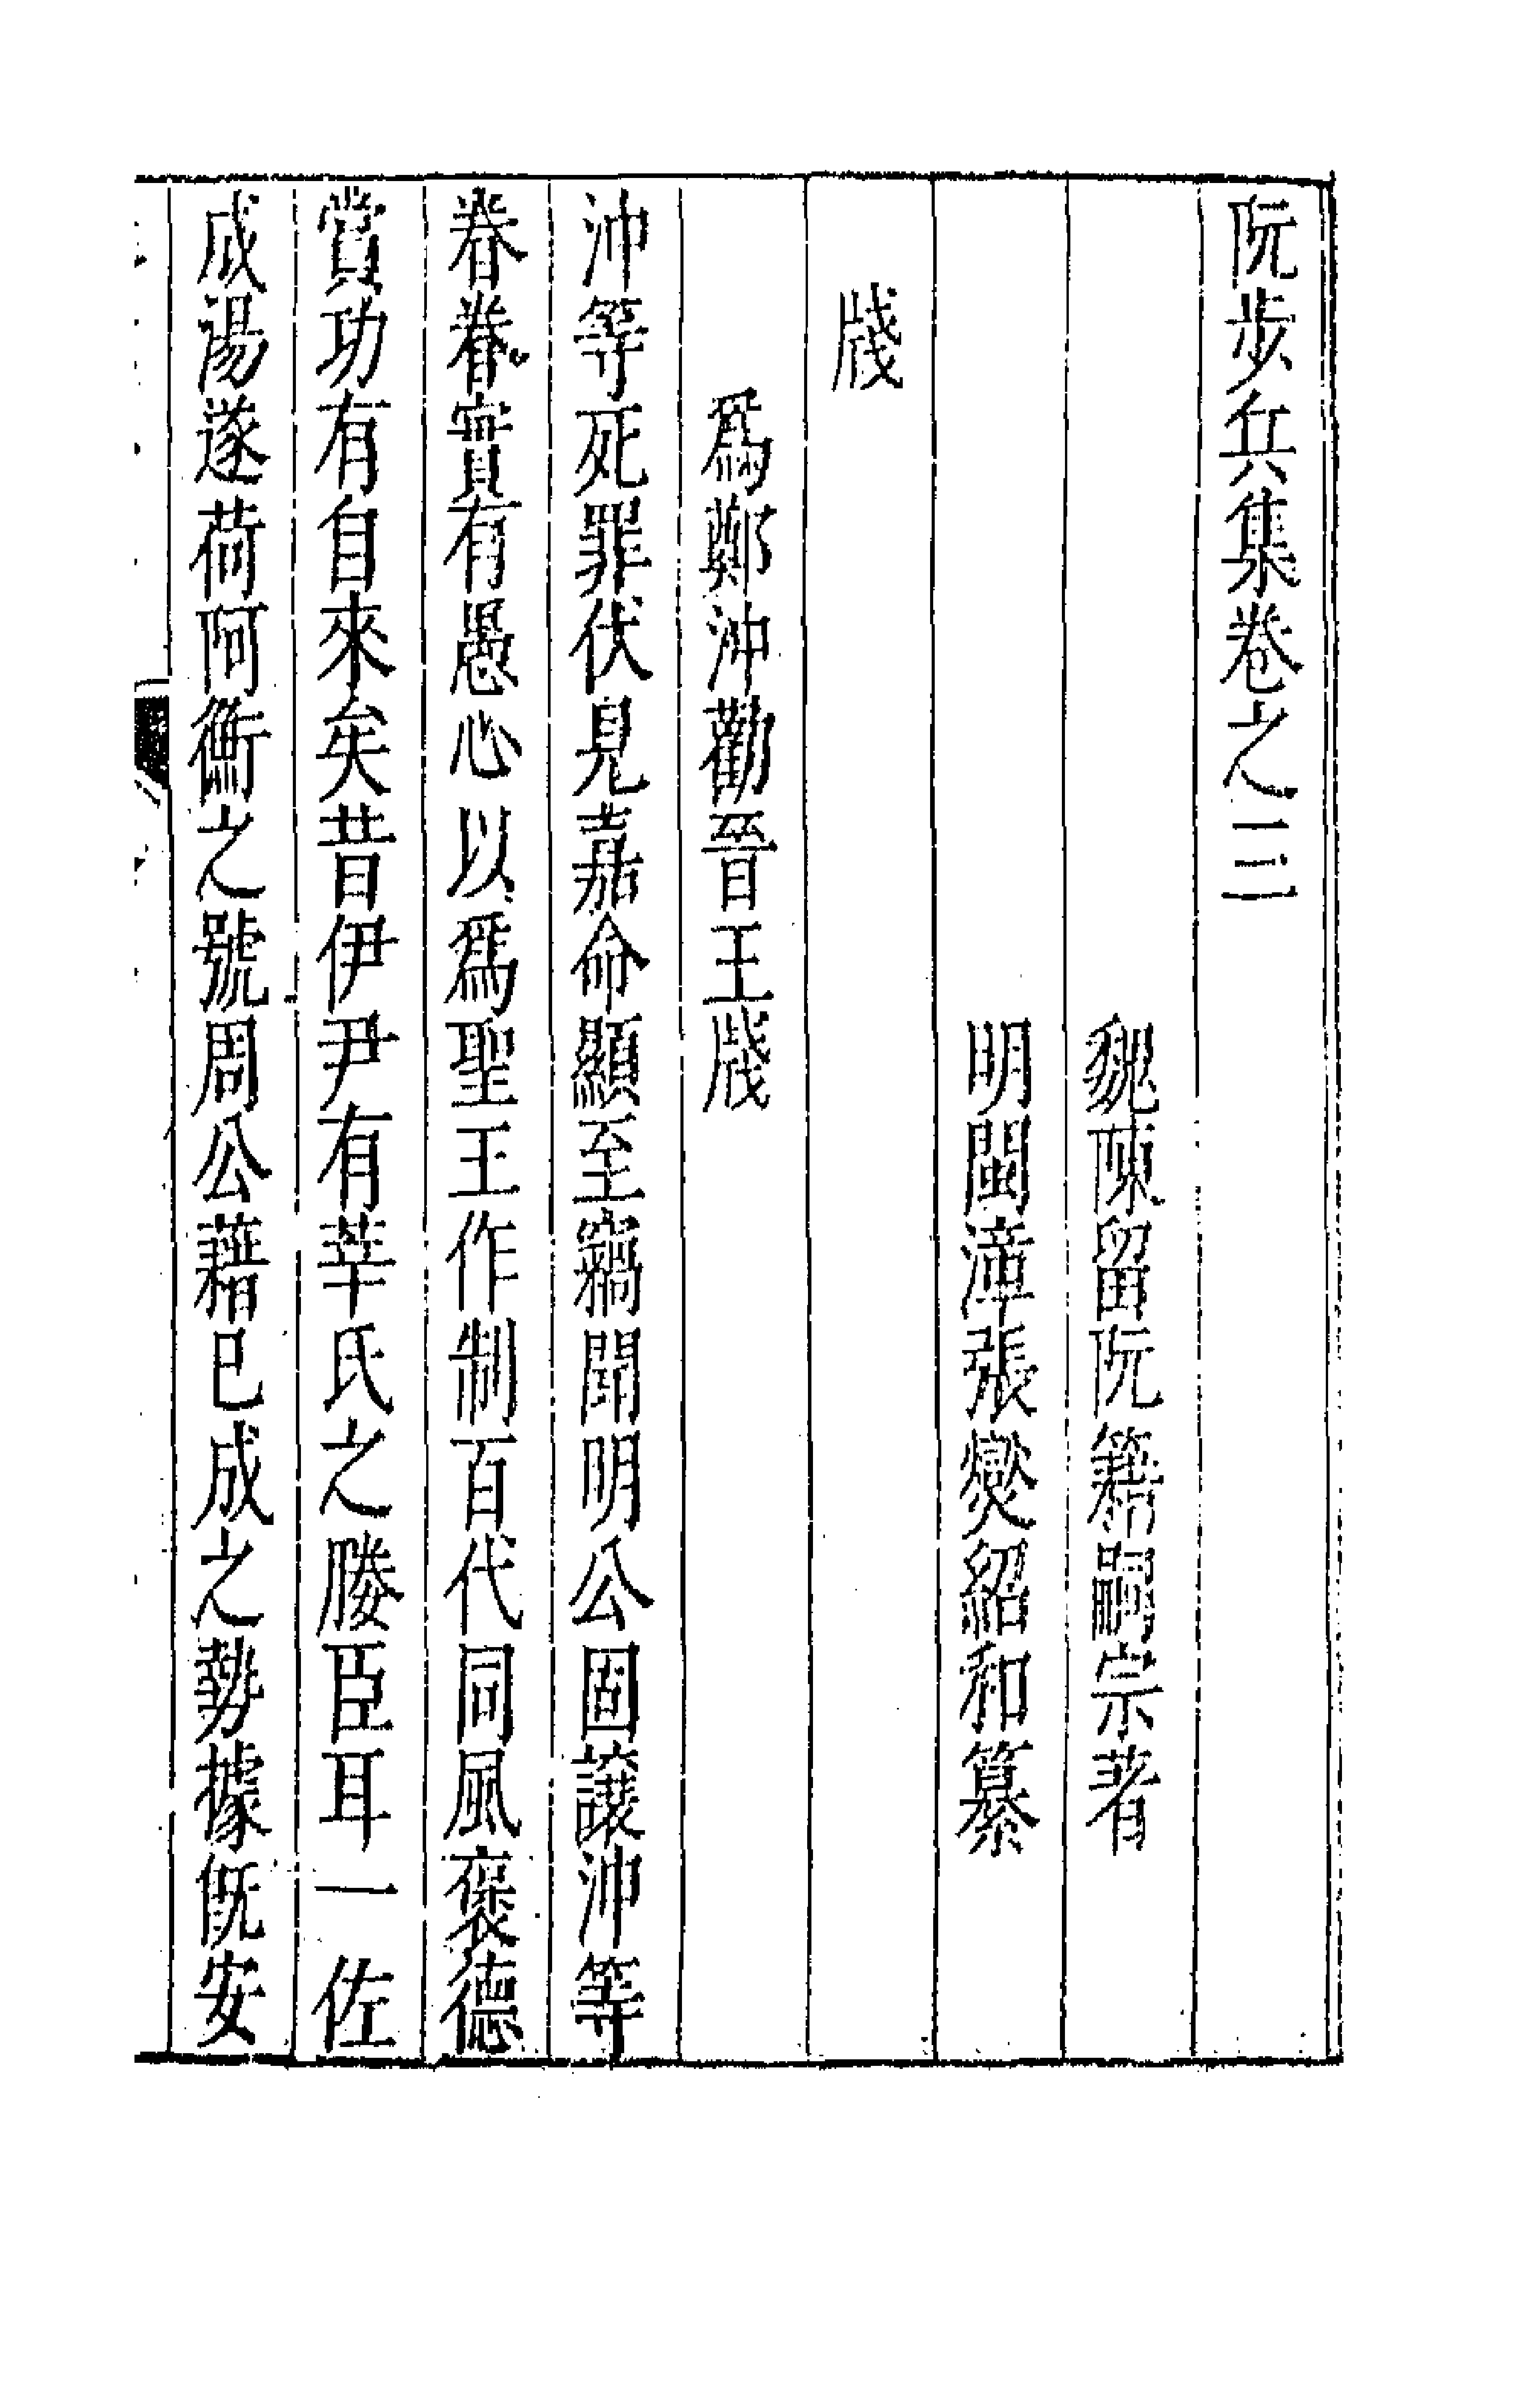 阮步兵集卷之三
魏陳留阮籍嗣宗著
明閩漳張燮紹和纂
牋
爲鄭沖勸晉王牋
沖等死罪伏見嘉命顯至竊聞明公固讓沖等
眷眷實有愚心以爲聖王作制百代同風褒德
賞功有自來矣昔伊尹有莘氏之媵臣耳一佐
成湯遂荷阿衡之號周公藉已成之勢據旣安